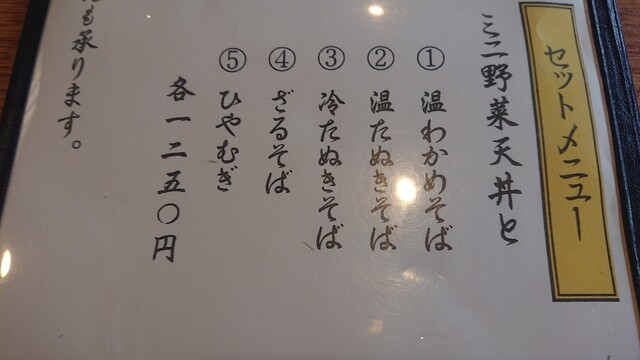 セットメニュー
ミニ野菜天丼と
① 温わかめそば
② 温たぬきそば
③ 冷たぬきそば
④ ざるそば
⑤ ひやむぎ
各一二五〇円
も承ります。